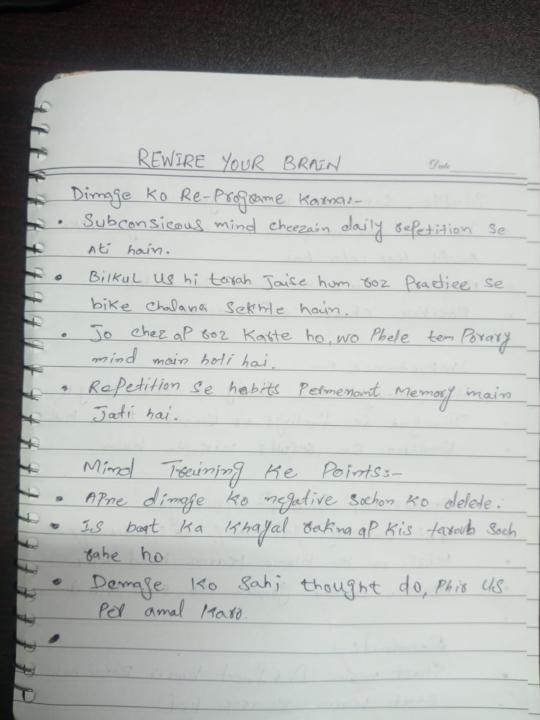 REWIRE YOUR BRAIN
Date
Dimage Ko Re-Programe Karna:-
• Subconsicous mind cheezain daily repetition se
Ati hain.
• Bilkul us hi tarah Jaise hum roz Practice se
bike chalana sekhte hain.
• Jo chez aP roz Karte ho, wo Phele tem Porary
mind main hoti hai.
• RePetition se habits Permenant Memory main
Jati hai.
Mind Training Ke Points:-
• APne dimage ko negative sochon ko delete.
• Is baat ka Khayal rakna aP Kis tarah Soch
rahe ho
• Demage Ko Sahi thought do, Phir us
Per amal Karo.
•